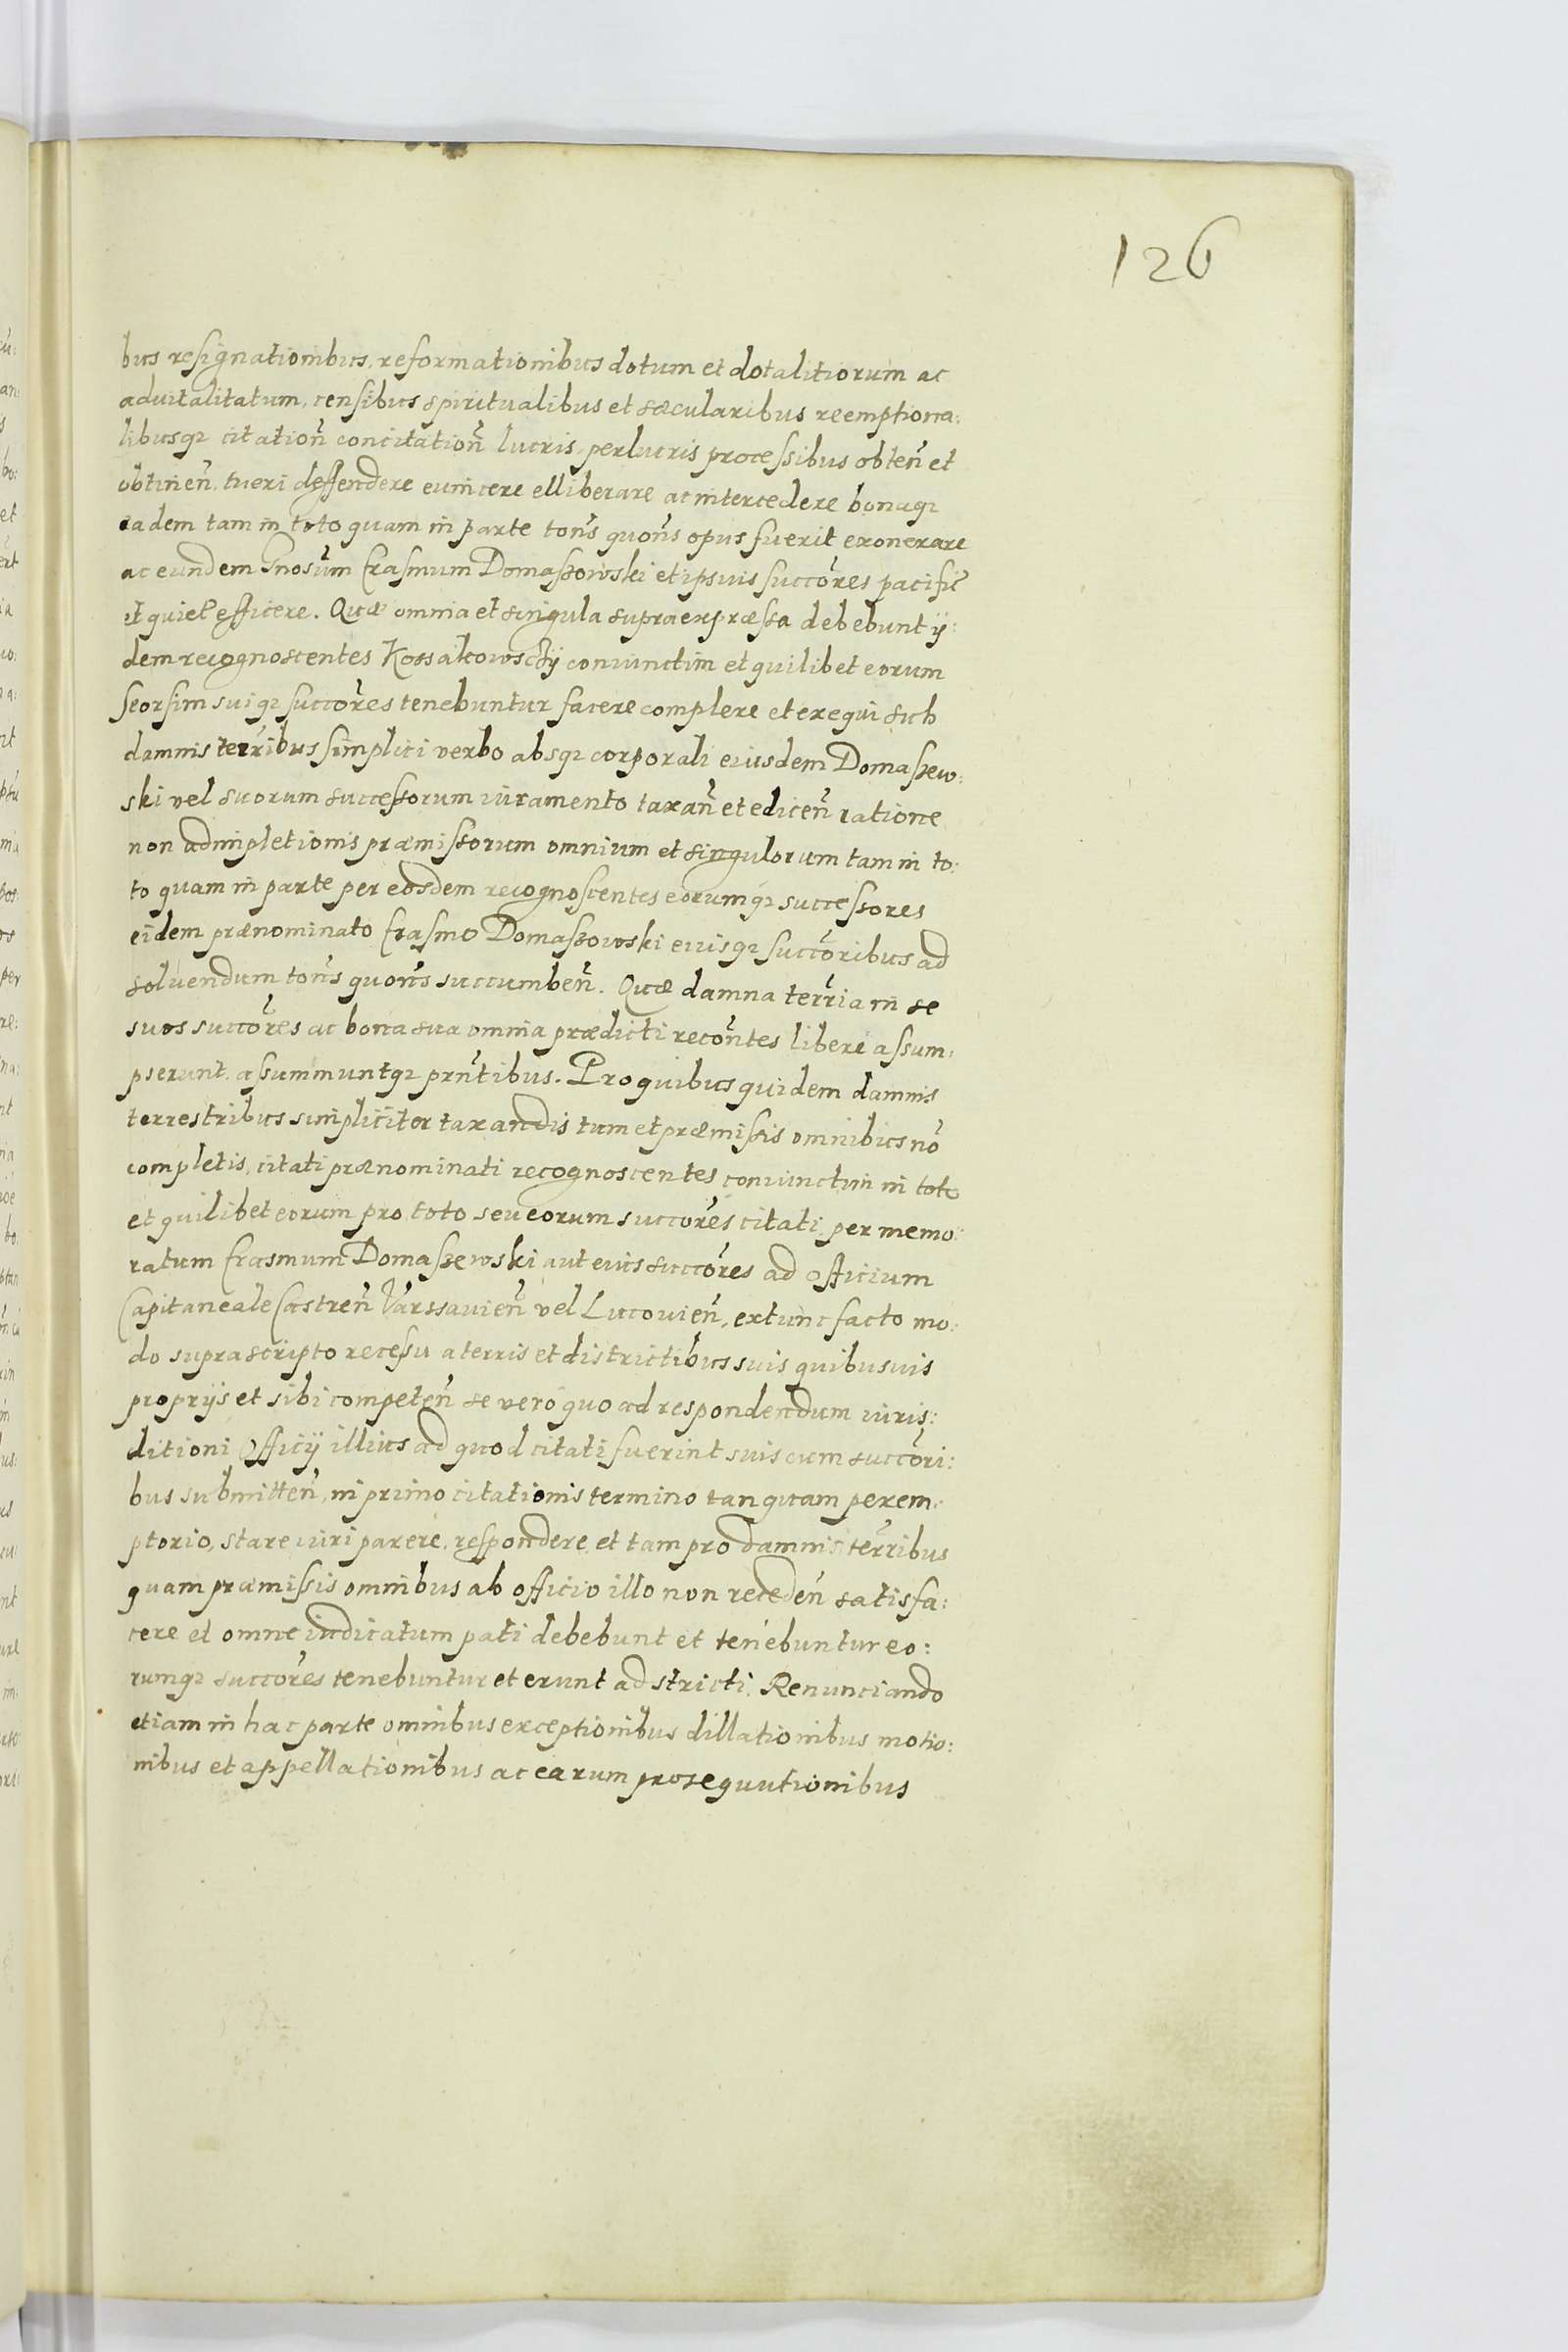 126
bus resignationibus, reformationibus dotum et dotalitiorum ac
aduitalitatum, censibus spiritualibus et sæcularibus reemptiona:
libusq₃ citation̄ concitation̄ lucris, perlucris processibus obten̄ et
obtinen̄, tueri deffendere euincere elliberare ac intercedere bonaq₃
eadem tam in toto quam in parte ton̄s quon̄s opus fuerit exonerare
ac eundem Gnosūm Erasmum Domaszowski et ipsius succōres pacific̄
et quiet̄ efficere. Quæ omnia et singula supraexpræssa debebunt ij:
dem recognoscentes Kossakowscÿ coniunctim et quilibet eorum
seorsim suiq₃ succōres tenebuntur facere complere et exequi sub
damnis terr̄ibus simplici verbo absq₃ corporali eiusdem Domaszew:
ski vel suorum successorum iuramento taxan̄ et edicen̄ ratione
non adimpletionis præmissorum omnium et singulorum tam in to:
to quam in parte per eosdem recognoscentes eorumq₃ successores
eidem prænominato Erasmo Domaszowski eiusq₃ succōribus ad
soluendum ton̄s quon̄s succumben̄. Quæ damna terr̄ia in se
suos succōres ac bona sua omnia prædicti recōntes libere assum:
pserunt, assummuntq₃ prn̄tibus. Pro quibus quidem damnis
terrestribus simpliciter taxandis tum et præmissis omnibus nō
completis, citati prænominati recognoscentes coniunctim in toto
et quilibet eorum pro toto seu eorum succōres citati per memo:
ratum Erasmum Domaszewski aut eius succōres ad officium
Capitaneale Castren̄ Varssauien̄ vel Lucouien̄, extunc facto mo:
do suprascripto recessu a terris et districtibus suis quibusuis
proprijs et sibi competen̄ se vero quo ad respondendum iuris:
ditioni Officij illius ad quod citati fuerint suis cum succōri:
bus submitten̄, in primo citationis termino tanquam perem:
ptorio, stare iuri parere, respondere et tam pro damnis terr̄ibus
quam præmissis omnibus ab officio illo non receden̄ satisfa:
cere et omne iudicatum pati debebunt et tenebuntur eo:
rumq₃ succōres tenebuntur et erunt adstricti. Renunciando
etiam in hac parte omnibus exceptionibus dillationibus motio:
nibus et appellationibus ac earum prosequutionibus